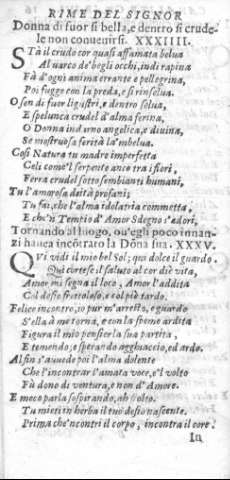 RIME DEL SIGNOR
Donna di fuor sì bella, e dentro sì crude-
le non convenirsi. XXXIIII.
STà il crudo cor quasi affamata belua
Al varco de' begli occhi, indi rapina
Fà d'ogni anima errante e pellegrina,
Poi fugge con la preda, e si rinselua.
O sen di fuor ligustri, e dentro selua,
E spelunca crudel d'alma ferina,
O Donna ind'arno angelica, e diuina,
Se mostruosa ferità la'mbelua.
Così Natura tu madre imperfetta
Celi come'l serpente ance tra i fiori,
Ferra crudel sotto sembianti humani,
Tu l'amorosa deità profani;
Tu fai, che l'alma idolatria commetta,
E che'n Tempio d'Amor Sdegno s'adori,
Tornando al luogo, ou'egli poco innan-
zi hauea incōtraro la Dōna sua. XXXV.
QVi vidi il mio bel Sol; quì dolce il guardo.
Quì cortese il saluto al cor diè vita,
Amor mi segna il loco, Amor l'addita
Col dosso frettoloso, e col piè tardo.
Felice incontro, io pur m'arresto, e guardo
S'ella à me torna, e con la speme ardita
Figura il mio pensier la sua partita,
E temendo, e sperando agghiaccio, ed ardo.
Alfin s'auuede poi l'alma dolente
Che l'incontrar l'amata voce, e'l volto
Fù dono di ventura, e non d'Amore.
E meco parla sospirando, ah stolto.
Tu mieti in herba il tuo desio nascente.
Prima che'ncontri il corpo, incontra il core.
In